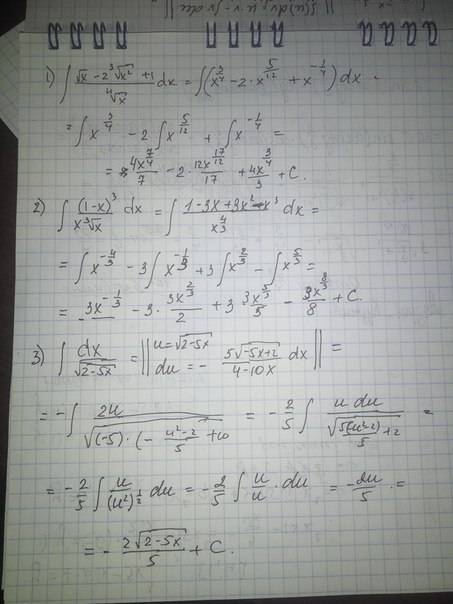 1) ∫ (√x - 2 ∛x² + 1)/⁴√x dx = ∫(x^(3/4) - 2·x^(5/12) + x^(-1/4)) dx .
= ∫ x^(3/4) - 2 ∫ x^(5/12) + ∫ x^(-1/4) =
= 4x^(7/4)/7 - 2· 12x^(17/12)/17 + 4x^(3/4)/3 + C.
2) ∫ (1-x)³/(x ∛x) dx = ∫ (1-3x+3x²-x³)/x^(4/3) dx =
= ∫ x^(-4/3) - 3∫ x^(-1/3) + 3∫ x^(2/3) - ∫ x^(5/3) =
= -3x^(-1/3) - 3· 3x^(2/3)/2 + 3 3x^(5/3)/5 - 3x^(8/3)/8 + C.
3) ∫ dx/√(2-5x) = ‖ u=√(2-5x)
du = - 5√(-5x+2)/(4-10x) dx ‖ =
= - 2/5 ∫ u/(u²)^(1/2) du = - 2/5 ∫ u/u · du = - 2u/5 · =
= - 2√(2-5x)/5 + C.